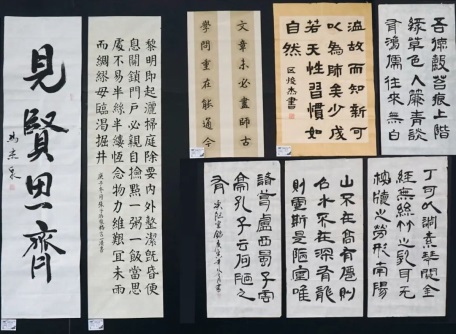 見賢思齊
黎明即起灑掃庭除要內外整潔既昏便
息關鎖門戶必親自撿點一粥一飯當思
處不易半絲半縷恆念物力維艱宜未雨
而綢繆毋臨渴掘井
文章未必盡師古
學問重在能通今
溫故而知新可
以為師矣少成
若天性習慣如
自然
山不在高有僊則
名水不在深有龍
則靈斯是陋室唯
吾德馨苔痕上階
綠草色入簾青談
有鴻儒往來無白
丁可以調素琴閱金
經無絲竹之亂耳無
案牘之勞形南陽
諸葛廬西蜀子雲
亭孔子云何陋之
有